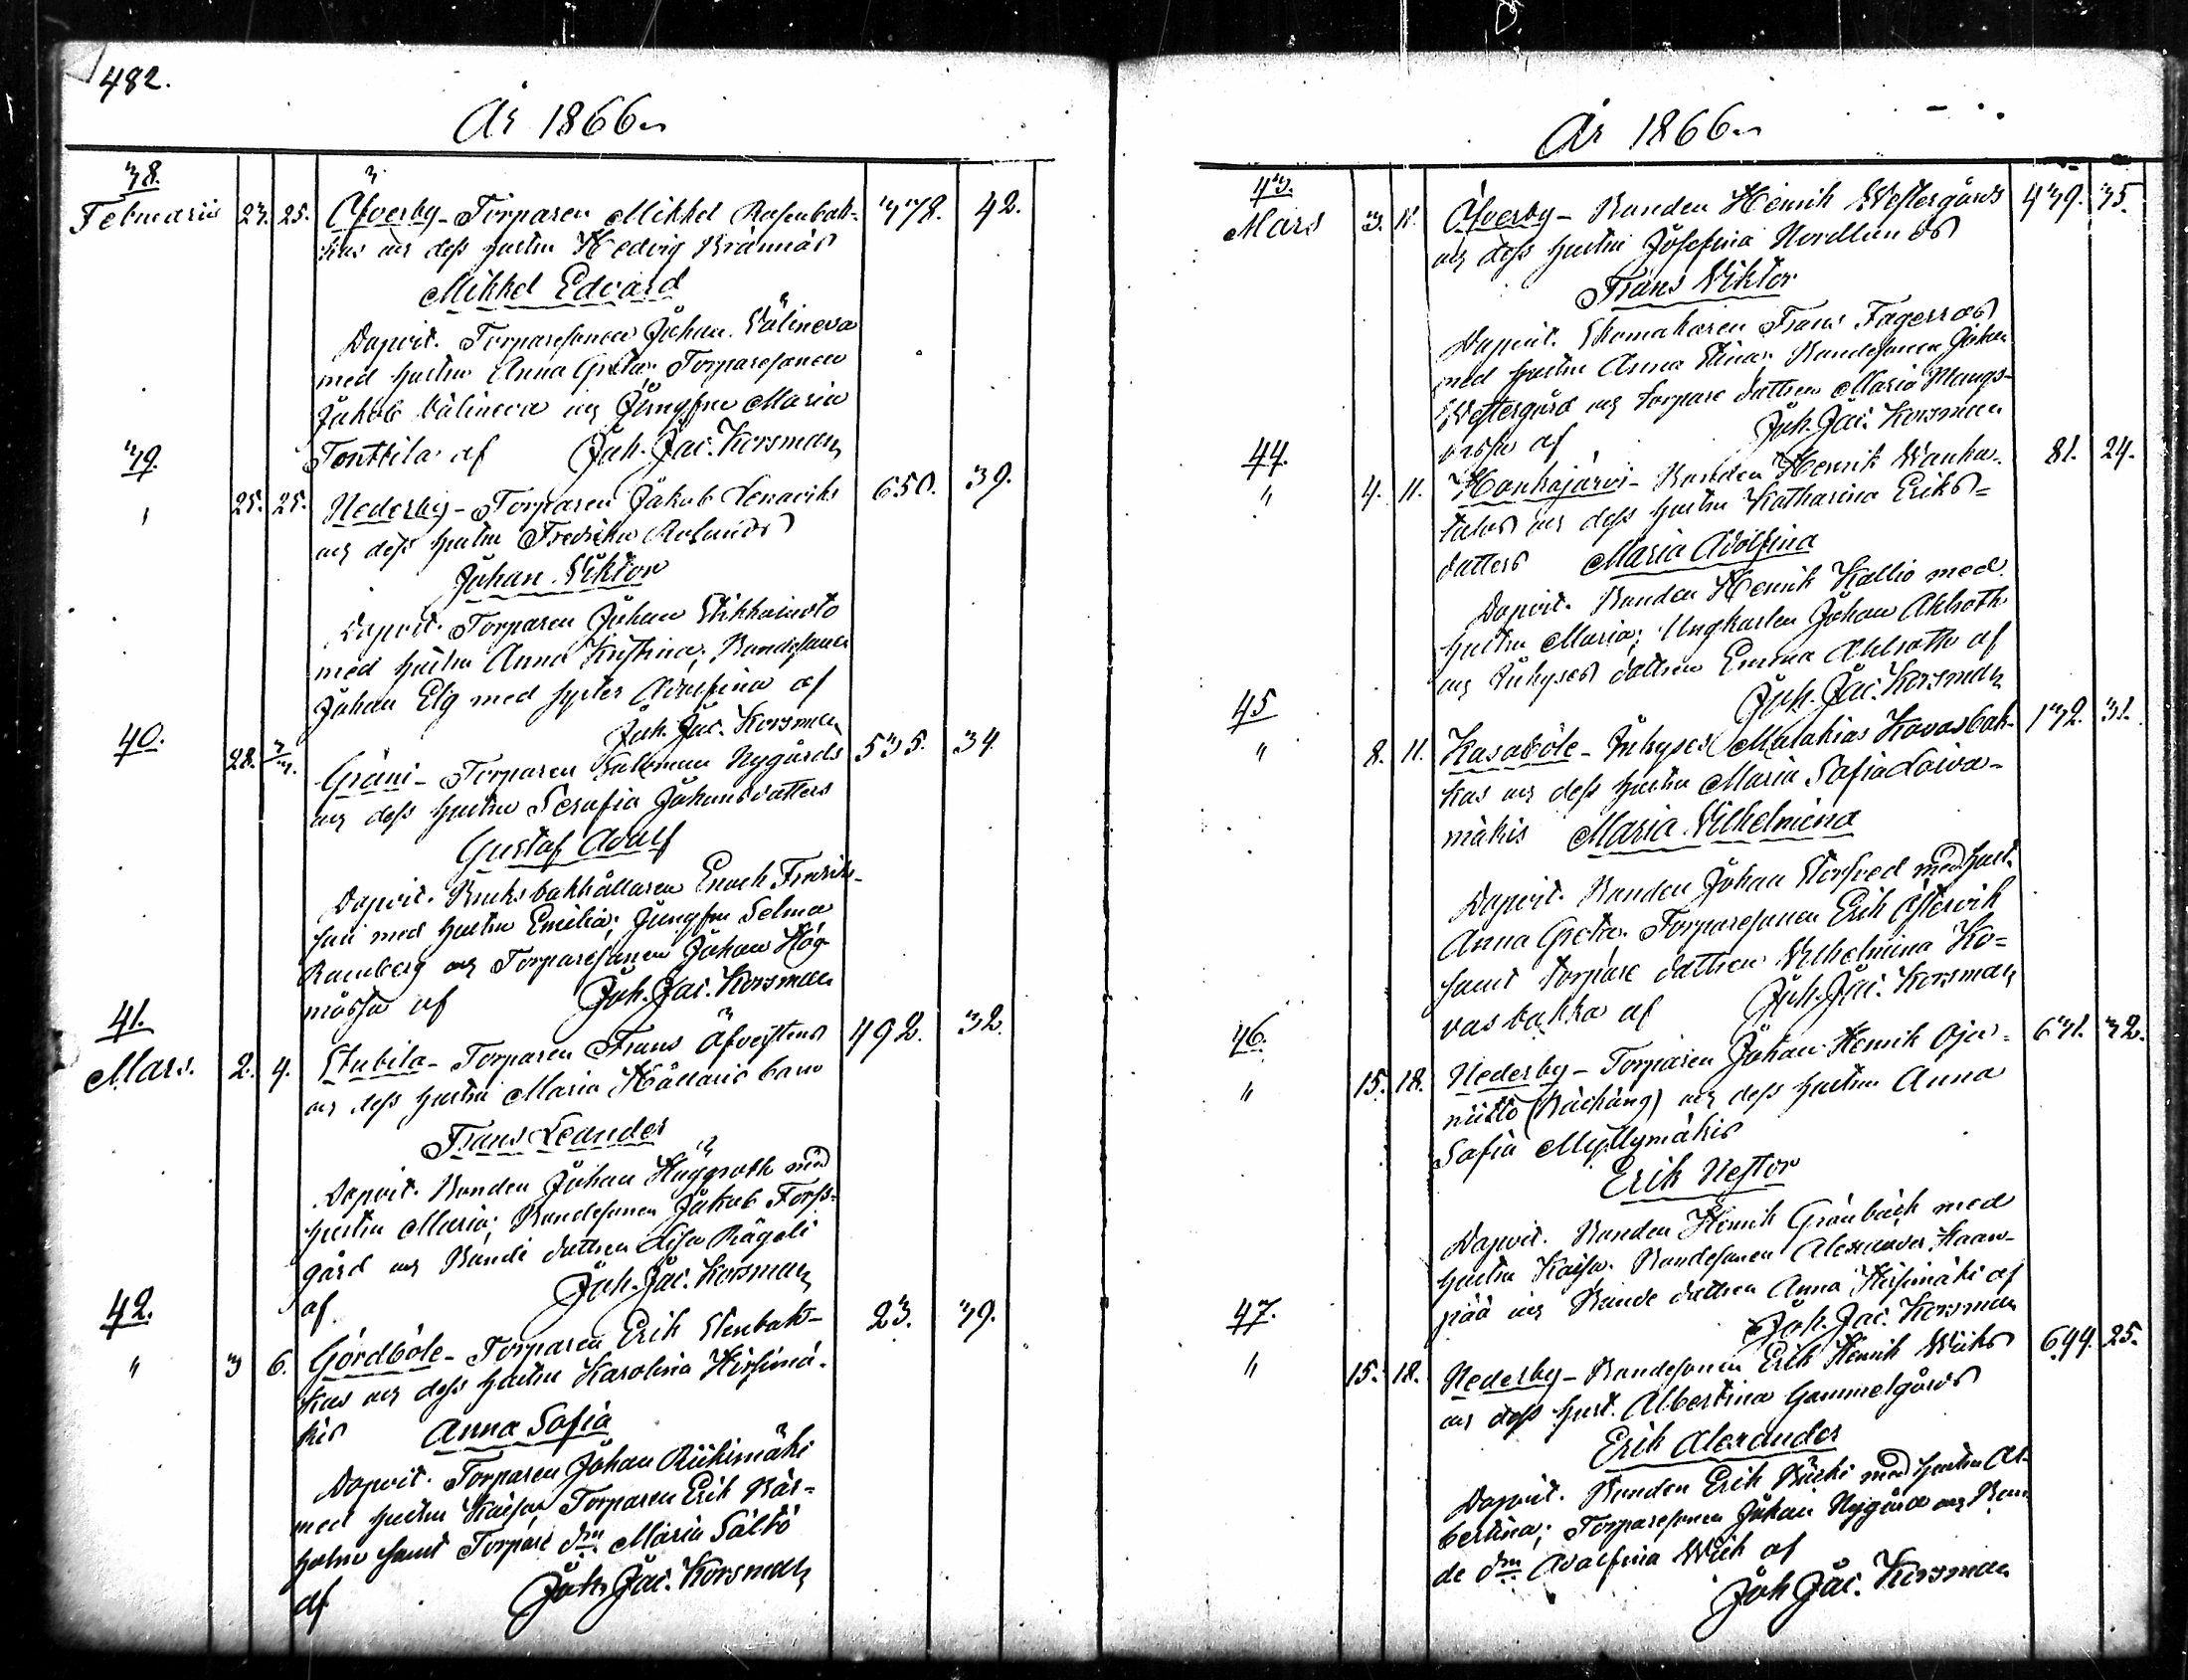 482.
År 1866.
38.
Februarii 23. 25. Öfverby - Torparen Mikkel Rosenbak- 378. 42.
kas och dess hustru Hedvig Brännäs
Mikkel Edvard
Dopvit. Torparesonen Johan Välineva
med hustru Anna Greta. Torparesonen
Jakob Välineva och Jungfru Maria
Tonttila af Joh. Jac. Korsman
39.
" 25. 25. Nederby - Torparen Jakob Lenaviks 650. 39.
och dess hustru Fredrika Roslunds
Johan Viktor
Dopvit. Torparen Johan
med hustru Anna Kristina; Bondesonen
Johan Elg med syster Adolfina af
Joh. Jac. Korsman
40.
28. Gräni - Torparen Nygårds 535. 34.
och dess hustru Serafia Johansdotters
Gustaf Adolf
Dopvit. Bruksbokhållaren Enoch Fredrik-
son med hustru Emilia; Jungfru Selma
Ramberg och Torparesonen Johan Hög
mossa af Joh. Jac. Korsman
41.
Mars. 2. 4. Stubila - Torparen Frans Öfverstens 492. 32.
och dess hustru Maria barn
Frans Leander
Dopvit. Bonden Johan Häggroth med
hustru Maria; Bondesonen Jakob Forss-
gård och Bonde dottren Lisa Rägoli
af Joh. Jac. Korsman
42.
" 3 6. Gördböle - Torparen Erik Stenbak- 23. 39.
kas och dess hustru Karolina Hirsimä-
kis Anna Sofia
Dopvit. Torparen Johan Riihimäki
med hustru Kaisa, Torparen Erik Bär-
holm samt Torpare d:n Maria Sältö
af Joh. Jac. Korsman
År 1866.
43.
Mars 3. 11. Öfverby - Bonden Henrik Westergårds 439. 35.
och dess hustru Josefina Nordlunds
Frans Viktor
Dopvit. Skomakaren Frans Fagerroos
med hustru Anna Stina; Bondesonen Johan
Westergård och torpare dottren Maria Mangs-
af Joh. Jac. Korsman
44.
" 4. 11. Honkajärvi - Bonden Henrik Wanha- 81. 24.
talos och dess hustru Katharina Eriks=
dotters Maria Adolfina
Dopvit. Bonden Henrik Kallio med
hustru Maria; Ungkarlen Johan Ahlroth
och Inhyses dottren Emma Ahlroth af
Joh. Jac. Korsman
45
" 8. 11. Kasaböle - Inhyses Malakias Kovasbak- 132. 31.
kas och dess hustru Maria Sofia Loiva-
mäkis Maria Vilhelmina
Dopvit. Bonden Johan Storsved med hust.
Anna Greta. Torparesonen Erik Östervik
samt torpare dottren Vilhelmina Ko=
vasbakka af Joh. Jac. Korsman
46.
" 15. 18. Nederby - Torparen Johan Henrik Ojan= 631. 32.
niitto (Bäckäng) och dess hustru Anna
Sofia Myllymäkis
Erik Nestor
Dopvit. Bonden Henrik Grönbäck med
hustru Kaisa. Bondesonen Alexander Haan-
pää och Bonde dottren Anna Hirsimäki af
Joh. Jac. Korsman
47.
" 15. 18. Nederby - Bondesonen Erik Henrik Wiiks 694. 25.
och dess hust. Albertina Gammelgårds
Erik Alexander
Dopvit. Bonden Erik Bäcki med hustru Al-
bertina; Torparesonen Johan Nygård och Bon-
de d:n Adolfina Wiik af
Joh. Jac. Korsman